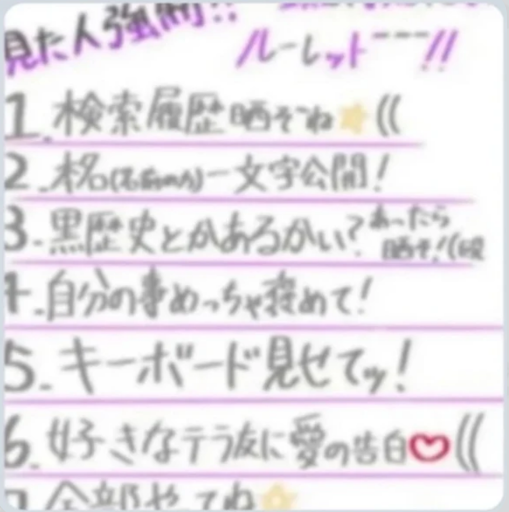 見た人強制!!
ルーレットーーー!!
1. 検索履歴晒そーね☆((
2. 本名(名前のみ)一文字公開!
3. 黒歴史とかあるかい?あったら晒そ!((殴
4. 自分の事めっちゃ褒めて!
5. キーボード見せてッ!
6. 好きなテラ友に愛の告白♡((
7. 全部やってね☆